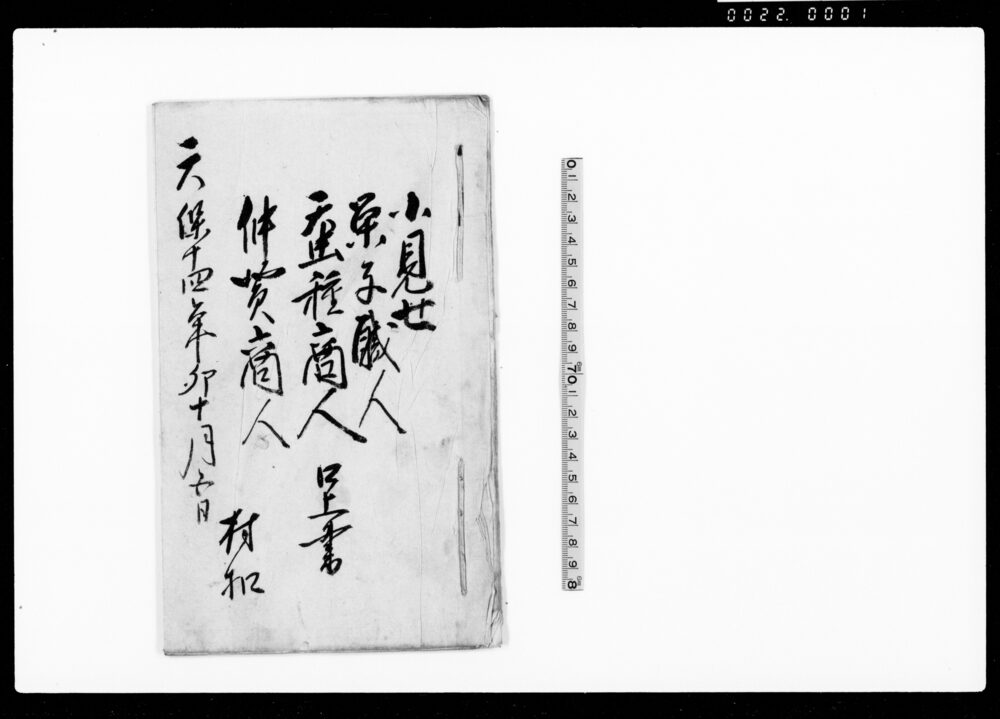 0022. 0001
小見世
菓子職人
蚕種商人 口上書
仲買商人 村扣
天保十四年卯十月日
0 1 2 3 4 5 6 7 8 9 10 1 2 3 4 5 6 7 8 9